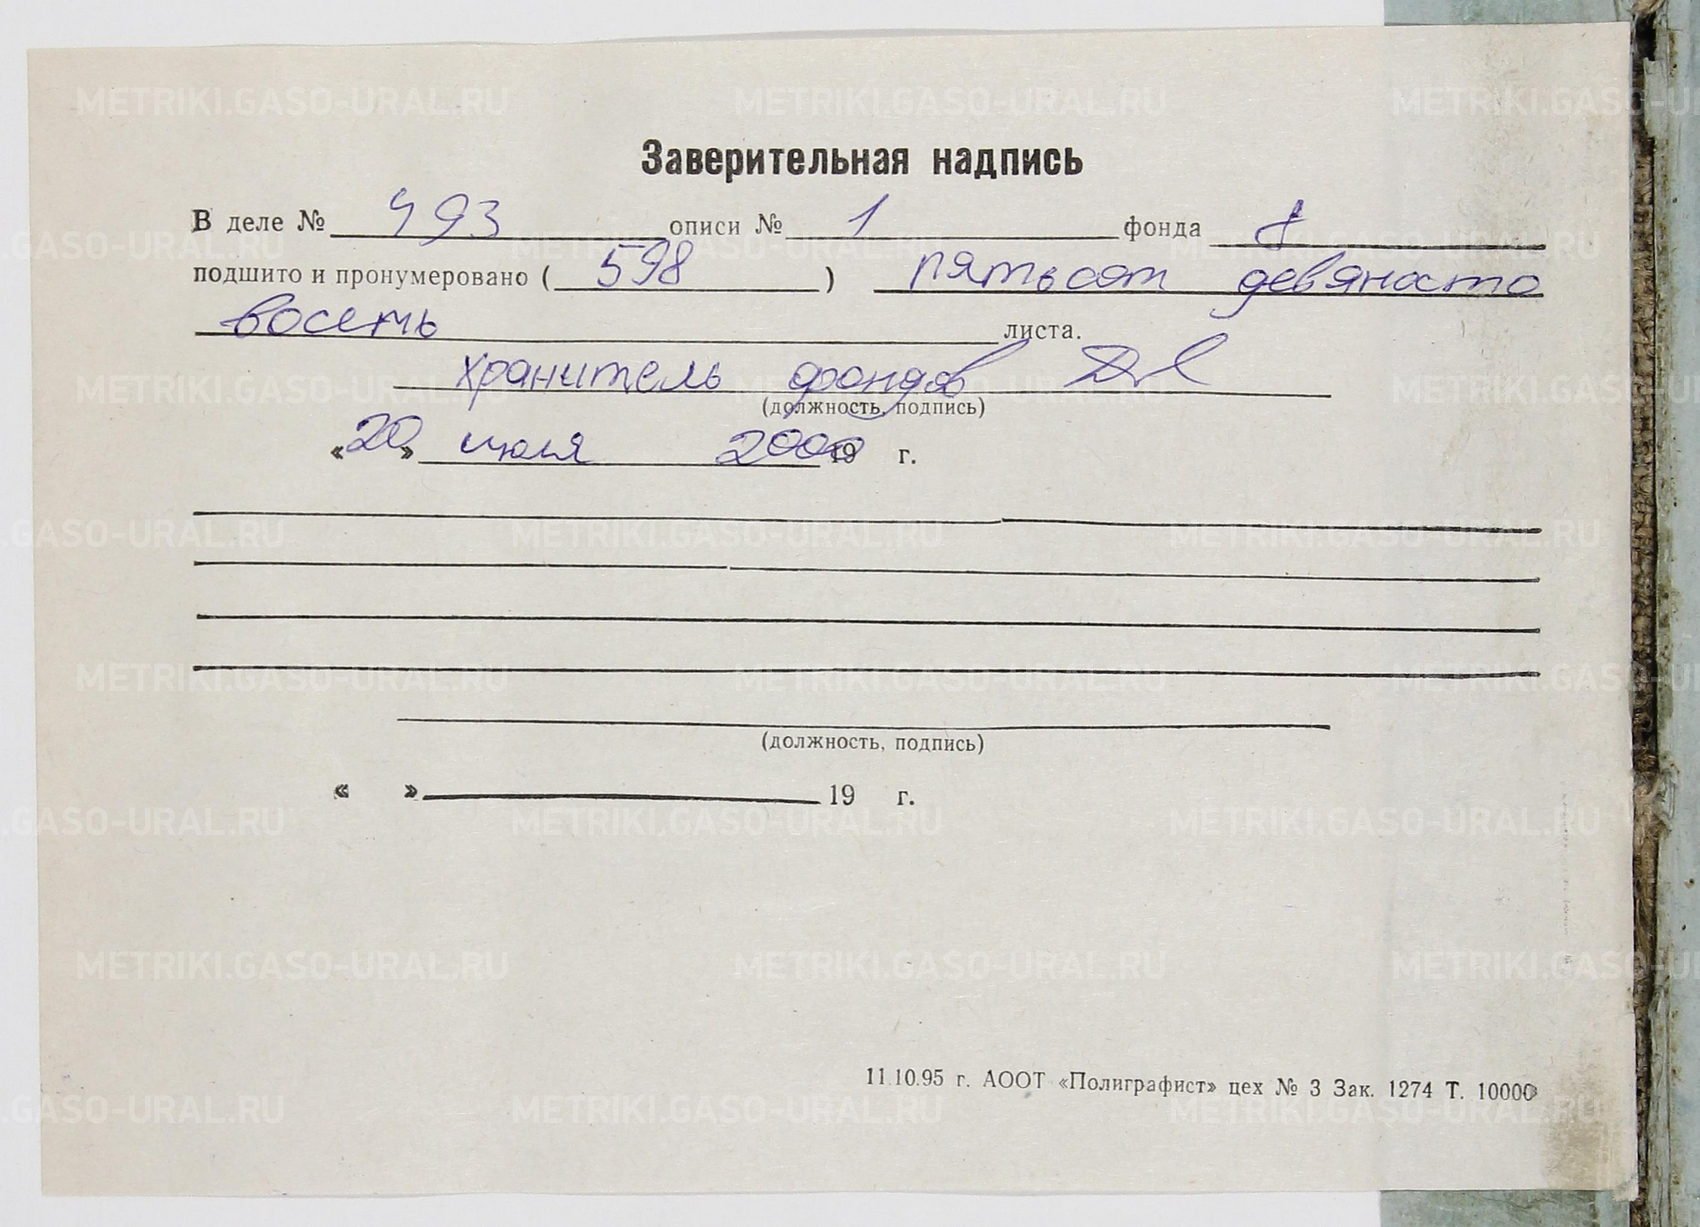 Заверительная надпись
В деле № 493 описи № 1 фонда
подшито и пронумеровано ( 598 ) пятьсот девяносто
восемь листа.
хранитель фондов
(должность, подпись)
« 20 » июля 2000 19 г.
(должность, подпись)
« » 19 г.
11.10.95 г. АООТ «Полиграфист» цех № 3 Зак. 1274 Т. 10000
METRIKI.GASO-URAL.RU